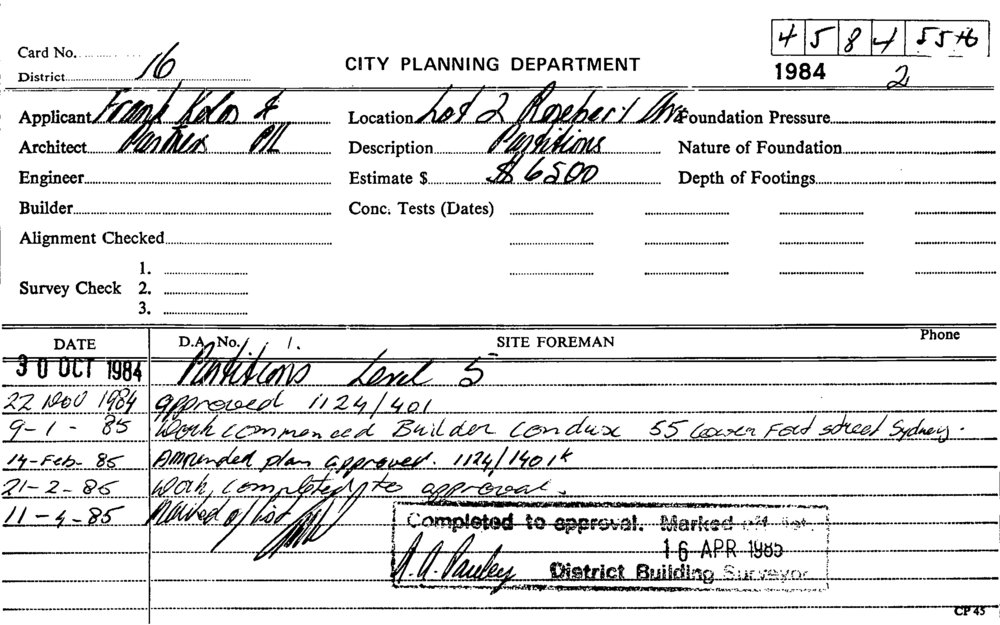 Card No. 4 5 8 4 55H6
District 16 CITY PLANNING DEPARTMENT 1984 2
Applicant Frank Kolos & Location Lot 2 Rosebery Ave Foundation Pressure
Architect Partners P/L Description Partitions Nature of Foundation
Engineer Estimate $ $6500 Depth of Footings
Builder Conc. Tests (Dates)
Alignment Checked
1.
Survey Check 2.
3.
DATE D.A. No. 1. SITE FOREMAN Phone
30 OCT 1984 Partitions Level 5
22 NOV 1984 approved 1124/401
9-1-85 Work commenced Builder Condux 55 Lower Fort street Sydney.
14-Feb-85 Ammended plan approved. 1124/1401k
21-2-85 Work, completed to approval.
11-4-85 Marked o/list
Completed to approval. Marked off list.
16 APR 1985
A. A. Pauley District Building Surveyor
CP 45